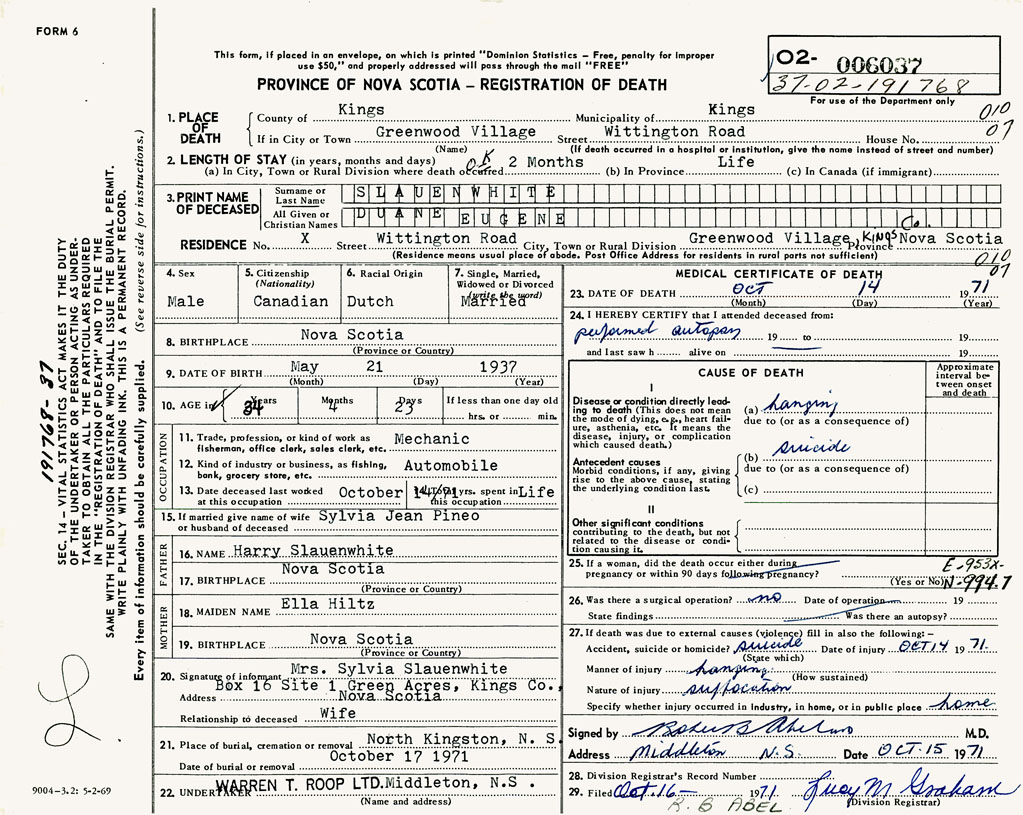 FORM 6
This form, if placed in an envelope, on which is printed "Dominion Statistics – Free, penalty for improper
use $50," and properly addressed will pass through the mail "FREE"
PROVINCE OF NOVA SCOTIA – REGISTRATION OF DEATH
02- 006037
37-02-191768
For use of the Department only
010
07
1. PLACE OF DEATH
County of Kings Municipality of Kings
If in City or Town Greenwood Village Street Wittington Road House No.
(Name) (If death occurred in a hospital or institution, give the name instead of street and number)
2. LENGTH OF STAY (in years, months and days)
(a) In City, Town or Rural Division where death occurred OR 2 Months (b) In Province Life (c) In Canada (if immigrant)
3. PRINT NAME OF DECEASED
Surname or Last Name SLAUENWHITE
All Given or Christian Names DUANE EUGENE
RESIDENCE No. X Street Wittington Road City, Town or Rural Division Greenwood Village, KINGS Co. Province Nova Scotia
(Residence means usual place of abode. Post Office Address for residents in rural parts not sufficient)
010
07
4. Sex Male
5. Citizenship (Nationality) Canadian
6. Racial Origin Dutch
7. Single, Married, Widowed or Divorced (write the word) Married
8. BIRTHPLACE Nova Scotia
(Province or Country)
9. DATE OF BIRTH May 21 1937
(Month) (Day) (Year)
10. AGE in Years 34 Months 4 Days 23 If less than one day old hrs. or min.
OCCUPATION
11. Trade, profession, or kind of work as fisherman, office clerk, sales clerk, etc. Mechanic
12. Kind of industry or business, as fishing, bank, grocery store, etc. Automobile
13. Date deceased last worked at this occupation October 14/71 yrs. spent in this occupation Life
15. If married give name of wife or husband of deceased Sylvia Jean Pineo
FATHER
16. NAME Harry Slauenwhite
17. BIRTHPLACE Nova Scotia
(Province or Country)
MOTHER
18. MAIDEN NAME Ella Hiltz
19. BIRTHPLACE Nova Scotia
(Province or Country)
20. Signature of informant Mrs. Sylvia Slauenwhite
Address Box 16 Site 1 Green Acres, Kings Co., Nova Scotia
Relationship to deceased Wife
21. Place of burial, cremation or removal North Kingston, N. S.
Date of burial or removal October 17 1971
22. UNDERTAKER WARREN T. ROOP LTD. Middleton, N.S.
(Name and address)
MEDICAL CERTIFICATE OF DEATH
23. DATE OF DEATH OCT 14 1971
(Month) (Day) (Year)
24. I HEREBY CERTIFY that I attended deceased from:
performed autopsy 19 to 19
and last saw h alive on 19
CAUSE OF DEATH
Approximate interval between onset and death
I
Disease or condition directly leading to death (This does not mean the mode of dying, e.g., heart failure, asthenia, etc. It means the disease, injury, or complication which caused death.)
(a) hanging
due to (or as a consequence of)
Antecedent causes
Morbid conditions, if any, giving rise to the above cause, stating the underlying condition last.
(b) suicide
due to (or as a consequence of)
(c)
II
Other significant conditions contributing to the death, but not related to the disease or condition causing it.
25. If a woman, did the death occur either during pregnancy or within 90 days following pregnancy? (Yes or No)
E-953X-
N-994.7
26. Was there a surgical operation? no Date of operation 19
State findings Was there an autopsy?
27. If death was due to external causes (violence) fill in also the following:–
Accident, suicide or homicide? suicide Date of injury OCT 14 1971.
(State which)
Manner of injury hanging
(How sustained)
Nature of injury suffocation
Specify whether injury occurred in industry, in home, or in public place home
Signed by M.D.
Address Middleton N.S. Date OCT. 15 1971
28. Division Registrar's Record Number
29. Filed Oct. 16 – 1971. Lucy M Graham
(Division Registrar)
R. B ABEL
9004–3.2: 5-2-69
191768-37
SEC. 14 – VITAL STATISTICS ACT MAKES IT THE DUTY
OF THE UNDERTAKER OR PERSON ACTING AS UNDER-
TAKER TO OBTAIN ALL THE PARTICULARS REQUIRED
IN THE "REGISTRATION OF DEATH" AND TO FILE THE
SAME WITH THE DIVISION REGISTRAR WHO SHALL ISSUE THE BURIAL PERMIT.
WRITE PLAINLY WITH UNFADING INK. THIS IS A PERMANENT RECORD.
Every item of information should be carefully supplied. (See reverse side for instructions.)